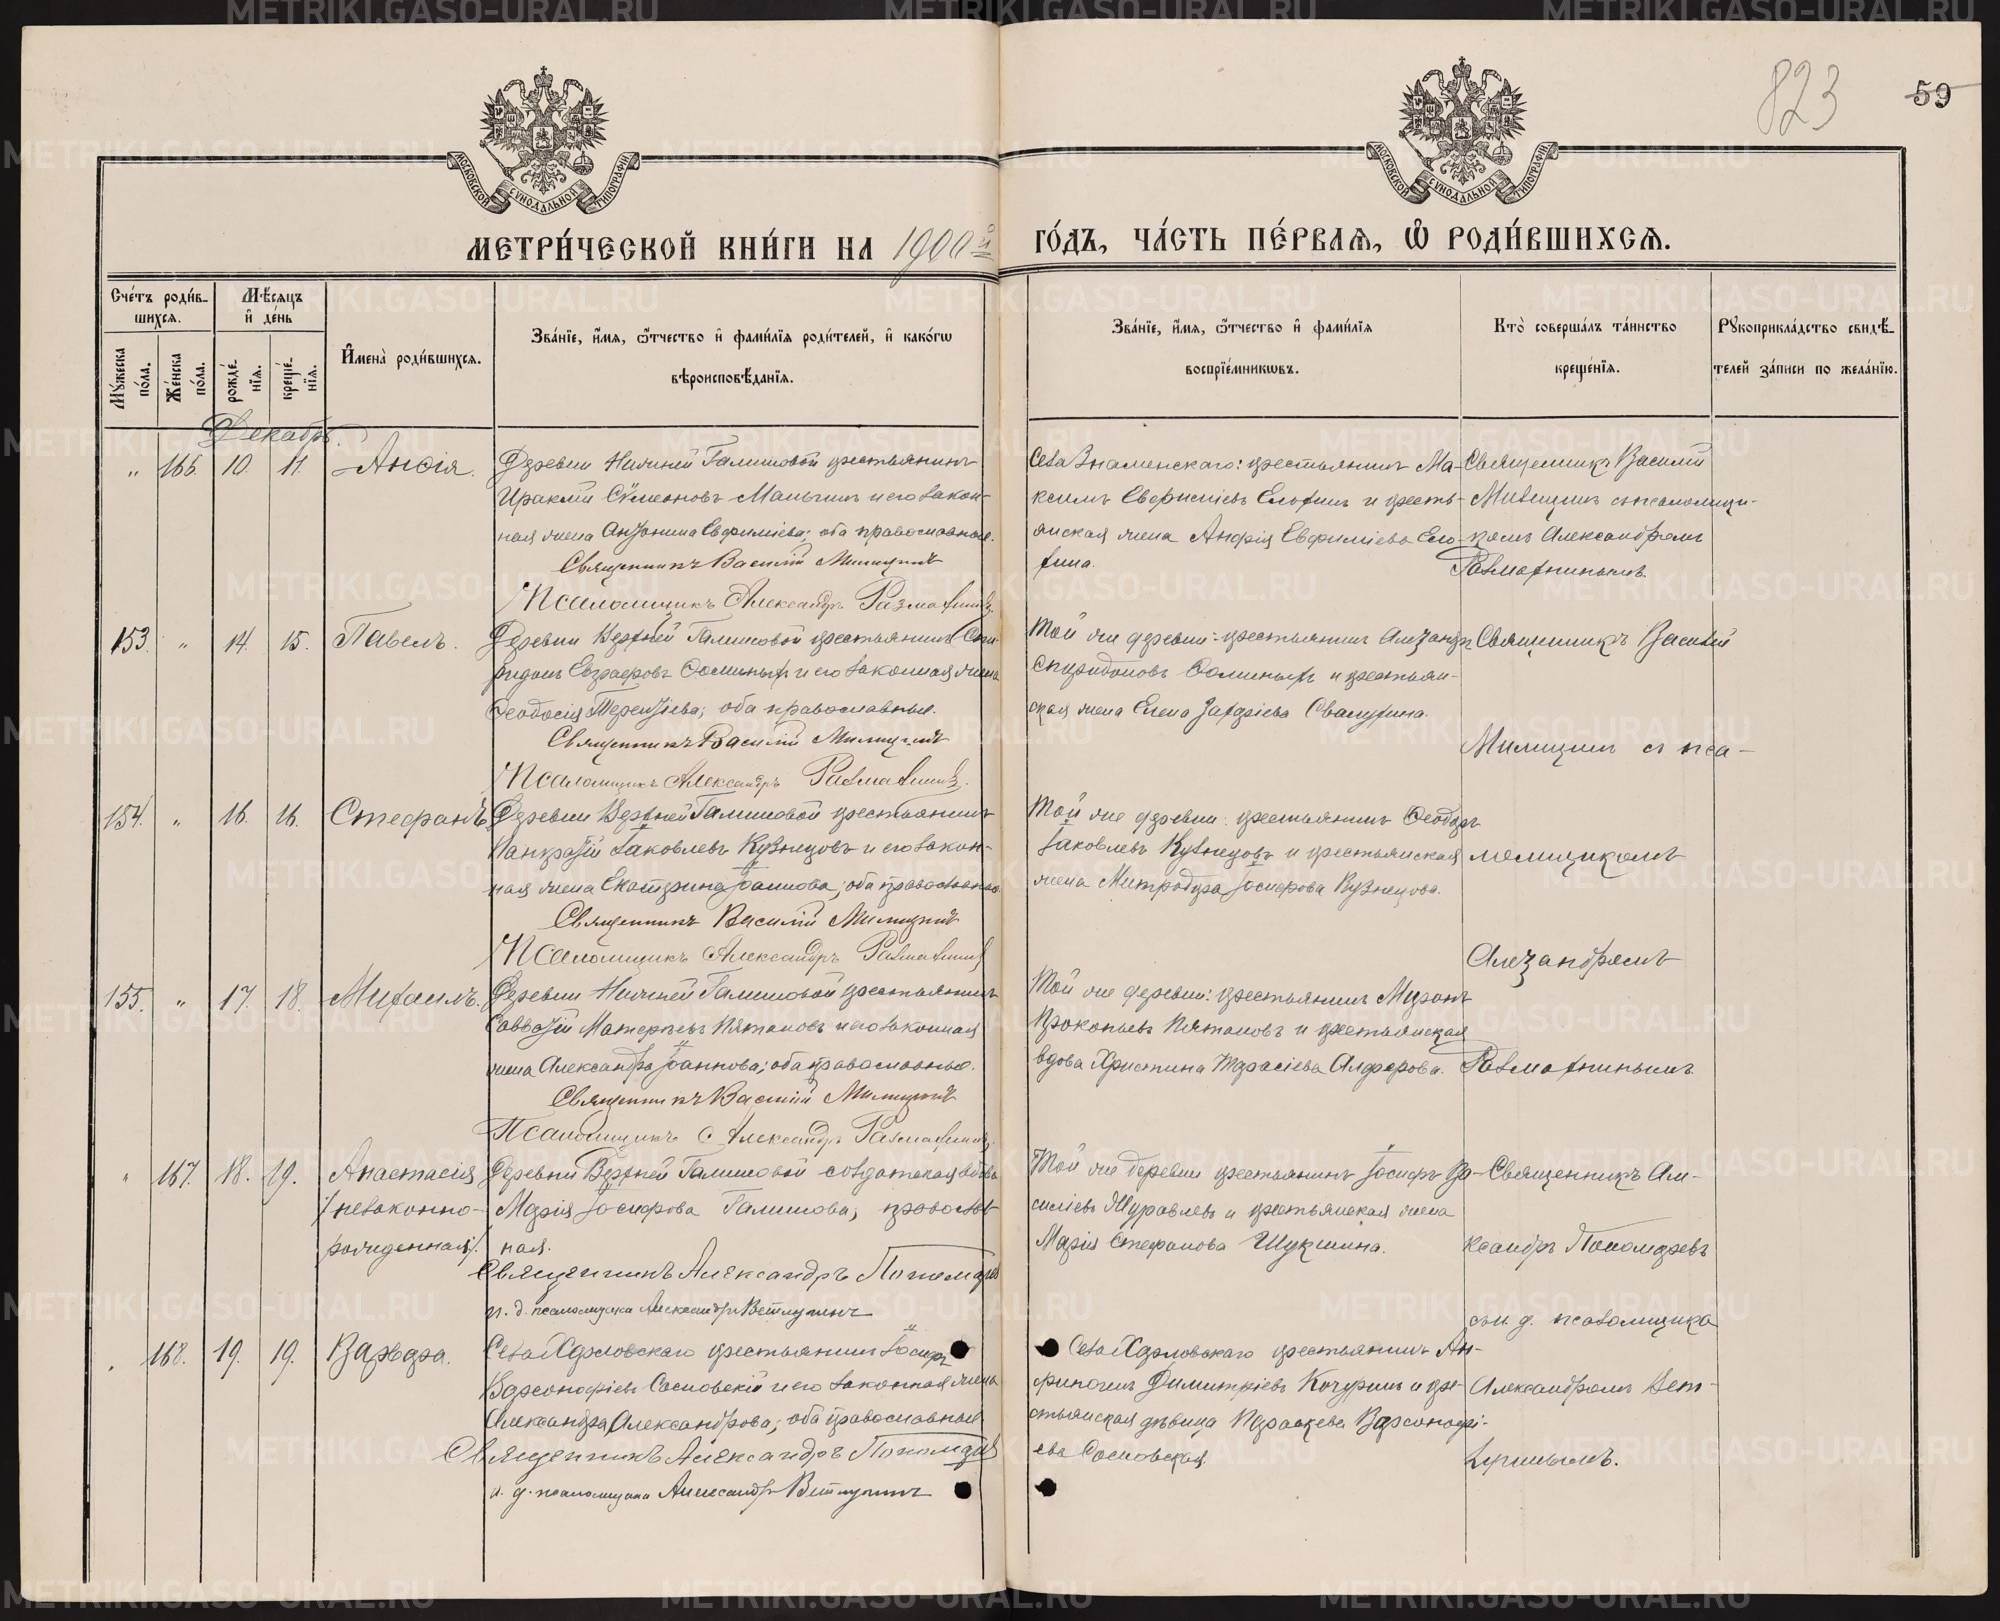 823
59
МОСКОВСКОЙ СУНОДАЛЬНОЙ ТИПОГРАФІИ
МОСКОВСКОЙ СУНОДАЛЬНОЙ ТИПОГРАФІИ
МЕТРИ́ЧЕСКОЙ КНИ́ГИ НА 1900й ГО́ДЪ, ЧА́СТЬ ПЕ́РВАѦ, Ѡ҆ РОДИ́ВШИХСѦ.
Сче́тъ роди́в-
шихсѧ.
Мѣ́сѧцъ
и҆ де́нь
И҆мена̀ роди́вшихсѧ.
Зва́нїе, и҆́мѧ, ѻ҆́тчество и҆ фами́лїѧ роди́телей, и҆ како́гѡ
вѣроисповѣ́данїѧ.
Зва́нїе, и҆́мѧ, ѻ҆́тчество и҆ фами́лїѧ
воспрїе́мникѡвъ.
Кто̀ соверша́лъ та́инство
креще́нїѧ.
Рꙋкоприкла́дство свидѣ́-
телей за́писи по жела́нїю.
Мꙋ́жеска
по́ла.
Же́нска
по́ла.
рожде́-
нїѧ.
креще́-
нїѧ.
Декабрь.
" 166. 10. 11. Анфія.
Деревни Нижней Галишовой крестьянинъ
Ираклій Сѵмеоновъ Маньгинъ и его закон-
ная жена Антонина Евфиміева; оба православные.
Священникъ Василій Милицынъ
Псаломщикъ Александръ
Села Знаменскаго: крестьянинъ Ма-
ксимъ и кресть-
янская жена Евфиміева
Священникъ Василій
Милицынъ съ псаломщи-
комъ Александромъ
153. " 14. 15. Павелъ.
Деревни Верхней Галишовой крестьянинъ Спи-
ридонъ и его законная жена
Ѳеодосія Терентіева; оба православные.
Священникъ Василій Милицынъ
Псаломщикъ Александръ
Той же деревни: крестьянинъ Александръ
Спиридоновъ и крестьян-
ская жена Елена
Священникъ Василій
Милицынъ съ пса-
154. " 16. 16. Стефанъ
Деревни Верхней Галишовой крестьянинъ
Панкратій Іаковлевъ Кузнецовъ и его закон-
ная жена Екатерина Іоаннова; оба православные
Священникъ Василій Милицынъ
Псаломщикъ Александръ
Той же деревни: крестьянинъ Ѳеодоръ
Іаковлевъ Кузнецовъ и крестьянская
жена Митродора Іосифова Кузнецова.
ломщикомъ
Александромъ
155. " 17. 18. Михаилъ.
Деревни Нижней Галишовой крестьянинъ
Савватій Пятановъ и его законная
жена Александра Іоаннова; оба православные.
Священникъ Василій Милицынъ
Псаломщикъ Александръ
Той же деревни: крестьянинъ Миронъ
Прокопьевъ Пятановъ и крестьянская
вдова Христина Тарасіева Алферова.
" 167. 18. 19. Анастасія
/незаконно-
рожденная/.
Деревни Верхней Галишовой солдатская вдова
Марія Іосифова Галишова; православ
ная.
Священникъ Александръ Пономаревъ
и. д. псаломщика Александръ Ветлугинъ
Той же деревни крестьянинъ Іосифъ Ва-
силіевъ Журавлевъ и крестьянская жена
Марія Стефанова Шукшина.
Священникъ Але-
ксандръ Пономаревъ
съ и. д. псаломщика
" 168. 19. 19. Варвара.
Села Харловскаго крестьянинъ Іосифъ
Варсонофіевъ Сосновскій и его законная жена
Александра Александрова; оба православные
Священникъ Александръ Пономаревъ
и. д. псаломщика Александръ Ветлугинъ
Села Харловскаго крестьянинъ Ан-
финогенъ Димитріевъ Кочуринъ и кре-
стьянская дѣвица Параскева Варсонофі-
ева Сосновская.
Александромъ Вет-
лугинымъ.
METRIKI.GASO-URAL.RU